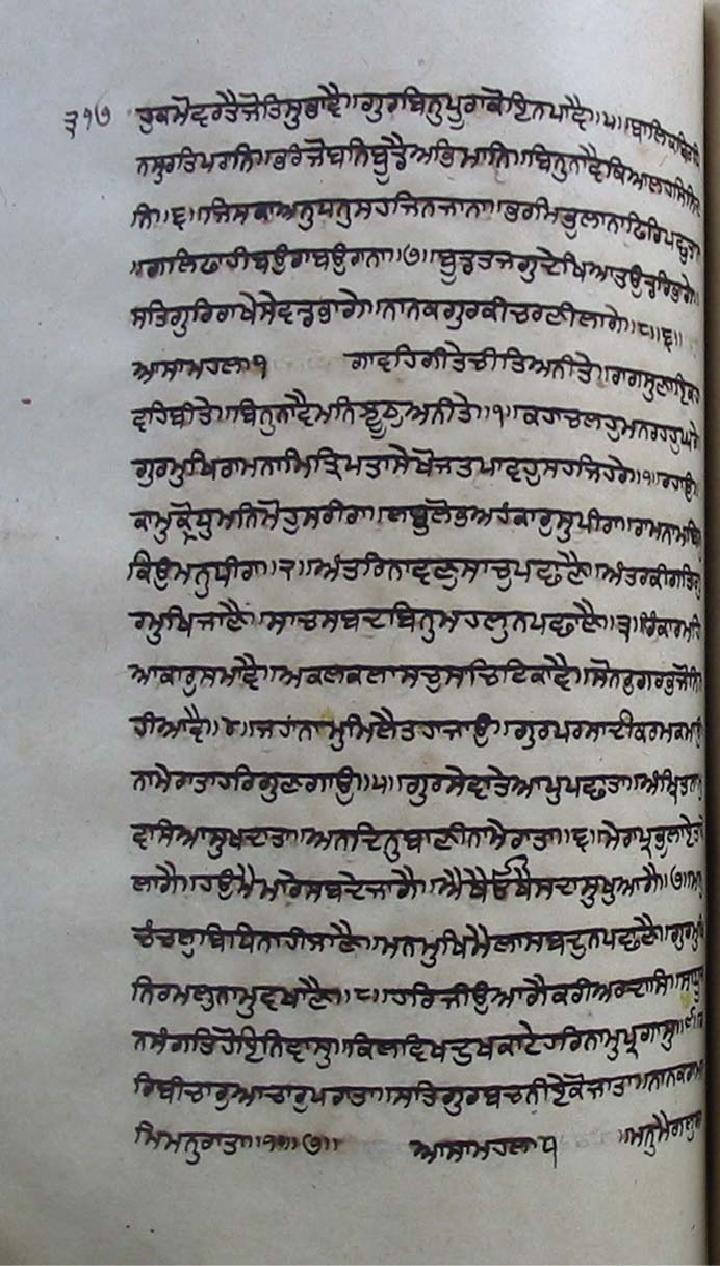 ੩੧੭ ਹੁਕਮੇ ਵਰਤੈ ਜੋਤਿ ਸੁਭਾਵੈ॥ ਗੁਰ ਬਿਨੁ ਪੂਰਾ ਕੋਇ ਨ ਪਾਵੈ॥੫॥ ਬਾਲਕ ਬਿਰਧਿ
ਨ ਸੁਰਤਿ ਪਰਾਨਿ॥ ਭਰਿ ਜੋਬਨਿ ਬੂਡੈ ਅਭਿਮਾਨਿ॥ ਬਿਨੁ ਨਾਵੈ ਕਿਆ ਲਹਸਿ
ਨਿ॥੬॥ ਜਿਸ ਕਾ ਅਨੁ ਧਨੁ ਸਹਜਿ ਨ ਜਾਨਾ॥ ਭਰਮਿ ਭੁਲਾਨਾ ਫਿਰਿ ਪਛੁਤਾ
॥ ਗਲਿ ਫਾਹੀ ਬਉਰਾ ਬਉਰਾਨਾ॥੭॥ ਬੂਡਤ ਜਗੁ ਦੇਖਿਆ ਤਉ ਡਰਿ ਭਾਗੇ॥
ਸਤਿਗੁਰਿ ਰਾਖੇ ਸੇ ਵਡਭਾਗੇ॥ ਨਾਨਕ ਗੁਰ ਕੀ ਚਰਣੀ ਲਾਗੇ॥੮॥੬॥
ਆਸਾ ਮਹਲਾ ੧ ਗਾਵਹਿ ਗੀਤੇ ਚੀਤਿ ਅਨੀਤੇ॥ ਰਾਗ ਸੁਣਾਇ ਕਹਾ
ਵਹਿ ਬੀਤੇ॥ ਬਿਨੁ ਨਾਵੈ ਮਨਿ ਝੂਠੁ ਅਨੀਤੇ॥੧॥ ਕਹਾ ਚਲਹੁ ਮਨ ਰਹਹੁ ਘਰੇ
ਗੁਰਮੁਖਿ ਰਾਮ ਨਾਮਿ ਤ੍ਰਿਪਤਾਸੇ ਖੋਜਤ ਪਾਵਹੁ ਸਹਜਿ ਹਰੇ॥੧॥ ਰਹਾਉ॥
ਕਾਮੁ ਕ੍ਰੋਧੁ ਮਨਿ ਮੋਹੁ ਸਰੀਰਾ॥ ਲਬੁ ਲੋਭੁ ਅਹੰਕਾਰੁ ਸੁ ਪੀਰਾ॥ ਰਾਮ ਨਾਮ ਬਿਨੁ
ਕਿਉ ਮਨੁ ਧੀਰਾ॥੨॥ ਅੰਤਰਿ ਨਾਵਣੁ ਸਾਚੁ ਪਛਾਣੈ॥ ਅੰਤਰ ਕੀ ਗਤਿ ਗੁ
ਰਮੁਖਿ ਜਾਣੈ॥ ਸਾਚ ਸਬਦ ਬਿਨੁ ਮਹਲੁ ਨ ਪਛਾਣੈ॥੩॥ ਨਿਰੰਕਾਰ ਮਹਿ
ਆਕਾਰੁ ਸਮਾਵੈ॥ ਅਕਲ ਕਲਾ ਸਚੁ ਸਚਿ ਟਿਕਾਵੈ॥ ਸੋ ਨਰੁ ਗਰਭ ਜੋਨਿ
ਹੀ ਆਵੈ॥੪॥ ਜਹਾਂ ਨਾਮੁ ਮਿਲੈ ਤਹ ਜਾਉ॥ ਗੁਰ ਪਰਸਾਦੀ ਕਰਮ ਕਮਾਉ
ਨਾਮੇ ਰਾਤਾ ਹਰਿ ਗੁਣ ਗਾਉ॥੫॥ ਗੁਰ ਸੇਵਾ ਤੇ ਆਪੁ ਪਛਾਤਾ॥ ਅੰਮ੍ਰਿਤ ਨਾਮੁ
ਵਸਿਆ ਸੁਖਦਾਤਾ॥ ਅਨਦਿਨੁ ਬਾਣੀ ਨਾਮੇ ਰਾਤਾ॥੬॥ ਮੇਰਾ ਪ੍ਰਭੁ ਲਾਏ ਤਾ ਕੋ
ਲਾਗੈ॥ ਹਉਮੈ ਮਾਰੇ ਸਬਦੇ ਜਾਗੈ॥ ਐਥੈ ਓਥੈ ਸਦਾ ਸੁਖੁ ਆਗੈ॥੭॥ ਮਨੁ
ਚੰਚਲੁ ਬਿਧਿ ਨਾਹੀ ਜਾਣੈ॥ ਮਨਮੁਖਿ ਮੈਲਾ ਸਬਦੁ ਨ ਪਛਾਣੈ॥ ਗੁਰਮੁਖਿ
ਨਿਰਮਲੁ ਨਾਮੁ ਵਖਾਣੈ॥੮॥ ਹਰਿ ਜੀਉ ਆਗੈ ਕਰੀ ਅਰਦਾਸਿ॥ ਸਾਧੂ
ਨ ਸੰਗਤਿ ਹੋਇ ਨਿਵਾਸੁ॥ ਕਿਲਵਿਖ ਦੁਖ ਕਾਟੇ ਹਰਿ ਨਾਮੁ ਪ੍ਰਗਾਸੁ॥੯॥
ਰਿ ਬੀਚਾਰੁ ਆਚਾਰੁ ਪਰਾਤਾ॥ ਸਤਿਗੁਰ ਬਚਨੀ ਏਕੋ ਜਾਤਾ॥ ਨਾਨਕ ਰਾਮ
ਮਿ ਮਨੁ ਰਾਤਾ॥੧੦॥੭॥ ਆਸਾ ਮਹਲਾ ੧ ॥ਮਨੁ ਮੈਗਲੁ